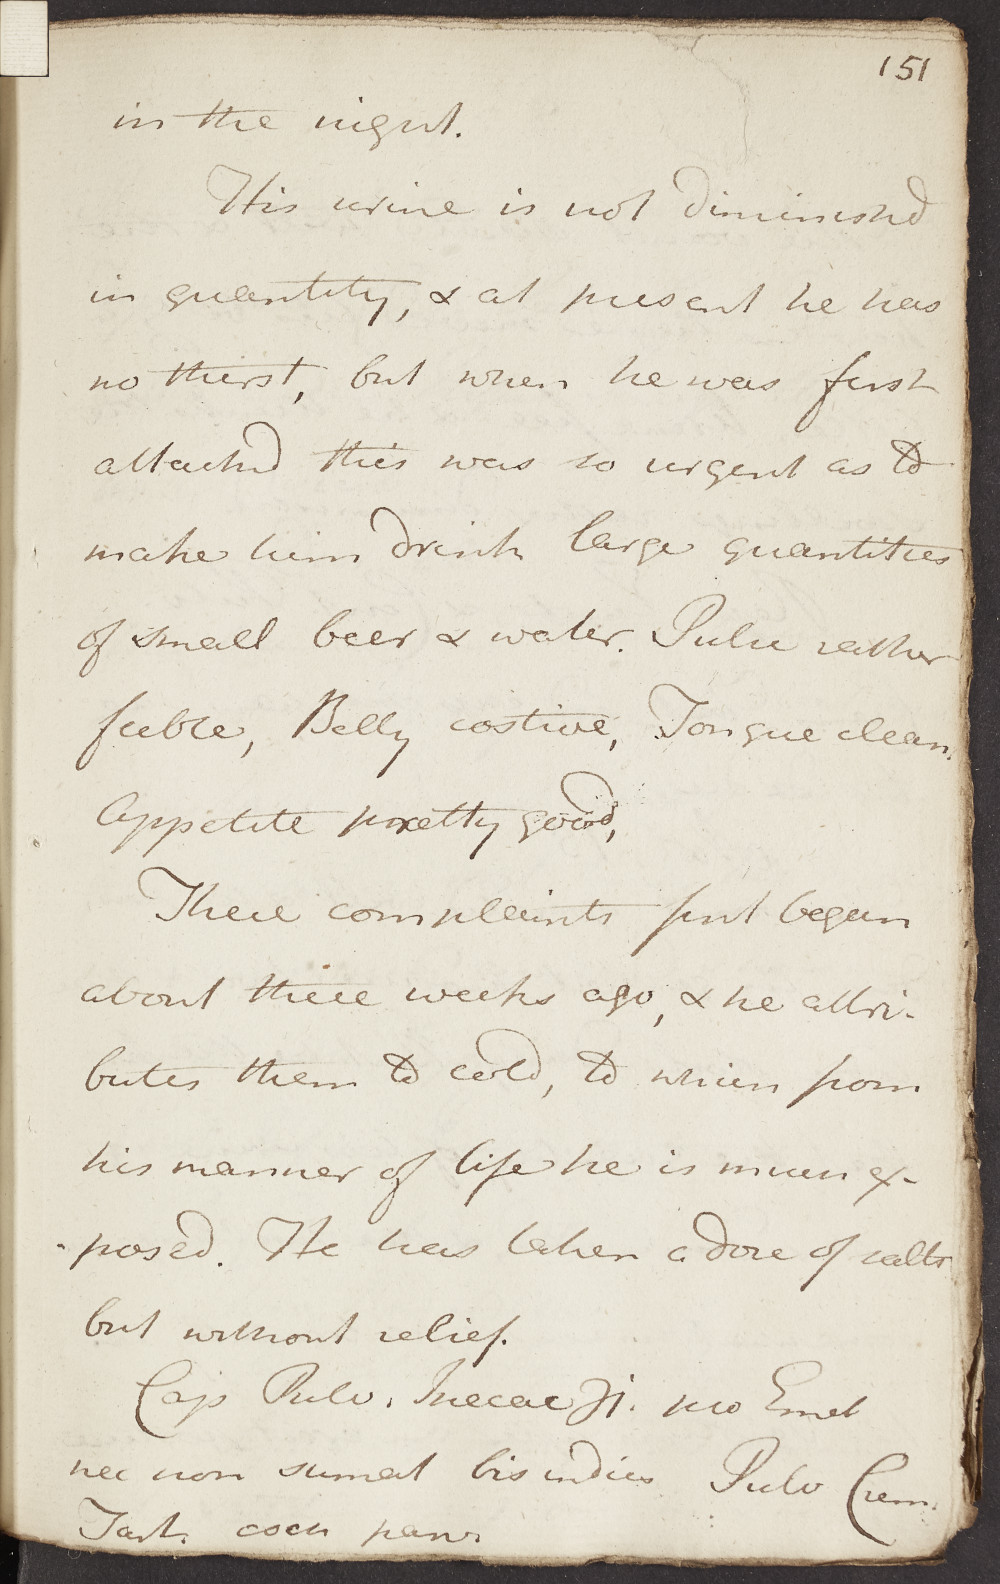 151
in the night.
His urine is not diminished
in quantity, & at present he has
no thirst, but when he was first
attacked this was so urgent as to
make him drink large quantities
of small beer & water. Pulse rather
feeble, Belly costive, Tongue clean.
Appetite pretty good,
These complaints first began
about three weeks ago, & he attri-
butes them to cold, to which from
his manner of life he is much ex-
-posed. He has taken a dose of salts
but without relief.
Cap Pulv. Ipecac ℈i. pro Emet
nec non sumat bis indies Pulv Crem.
Tart. coch parv.